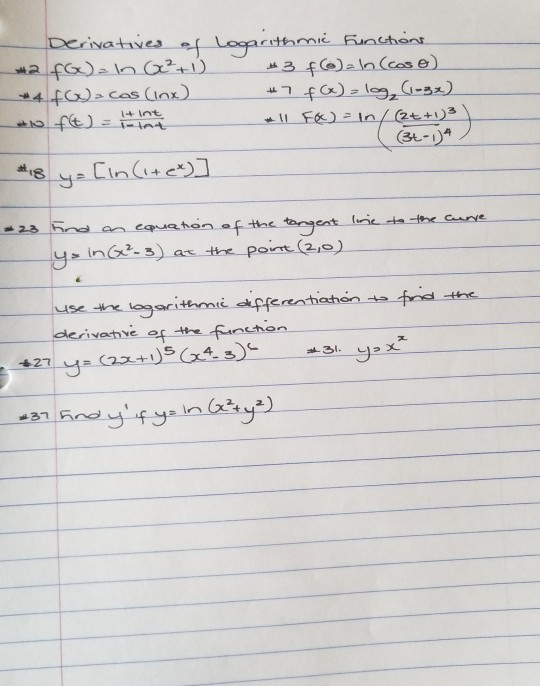 Derivatives of Logarithmic Functions
#2 f(x) = ln (x²+1) #3 f(θ) = ln (cos θ)
#4 f(x) = cos (lnx) #7 f(x) = log₂ (1-3x)
#10 f(t) = (1+lnt)/(1-lnt) #11 F(x) = ln ((2t+1)³/(3t-1)⁴)
#18 y = [ln (1+eˣ)]
#23 Find an equation of the tangent line to the curve
y = ln (x²-3) at the point (2,0)
use the logarithmic differentiation to find the
derivative of the function
#27 y = (2x+1)⁵ (x⁴-3)⁶ #31. y = xˣ
#37 Find y' if y = ln (x²+y²)